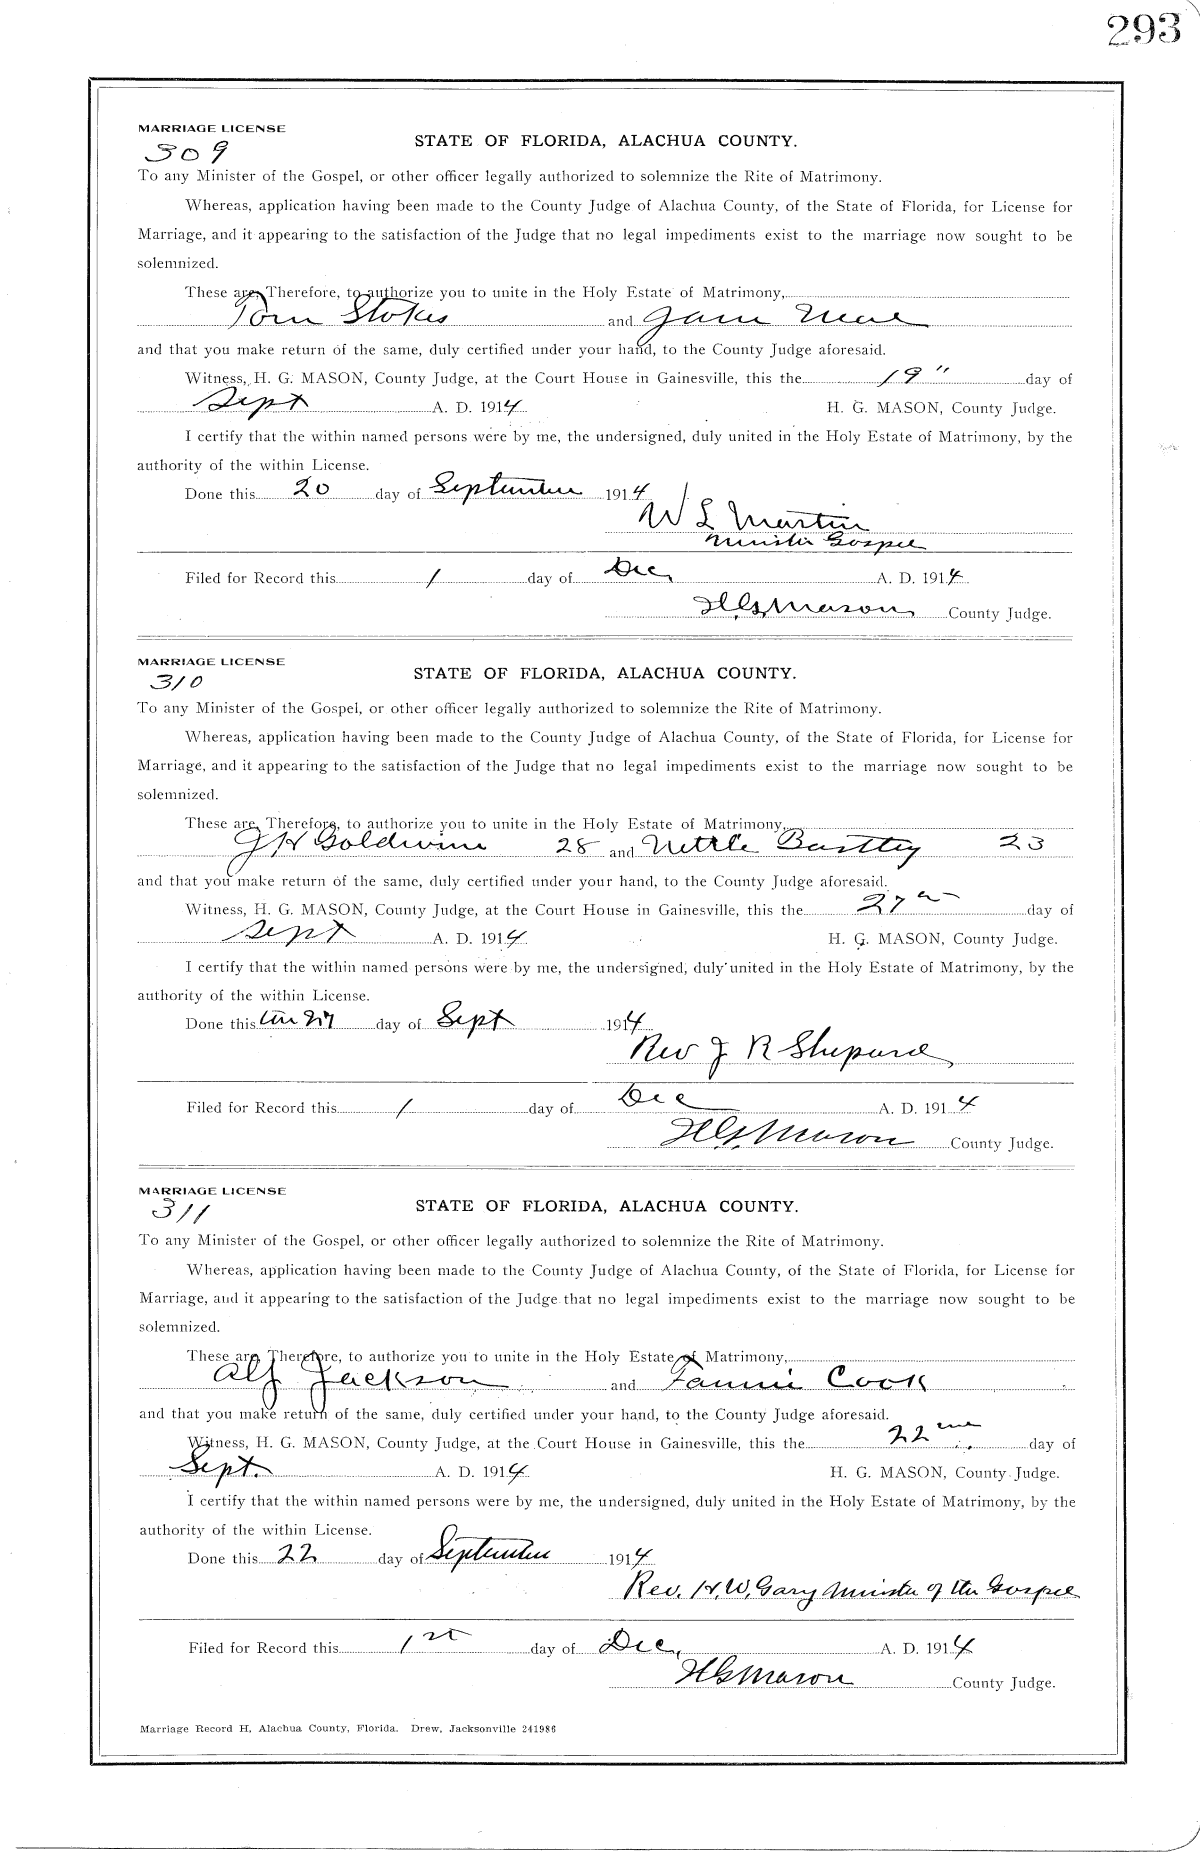 293
MARRIAGE LICENSE
309
STATE OF FLORIDA, ALACHUA COUNTY.
To any Minister of the Gospel, or other officer legally authorized to solemnize the Rite of Matrimony.
Whereas, application having been made to the County Judge of Alachua County, of the State of Florida, for License for
Marriage, and it appearing to the satisfaction of the Judge that no legal impediments exist to the marriage now sought to be
solemnized.
These are, Therefore, to authorize you to unite in the Holy Estate of Matrimony,
Tom Stokes and Jane
and that you make return of the same, duly certified under your hand, to the County Judge aforesaid.
Witness, H. G. MASON, County Judge, at the Court House in Gainesville, this the 19" day of
Sept A. D. 1914 H. G. MASON, County Judge.
I certify that the within named persons were by me, the undersigned, duly united in the Holy Estate of Matrimony, by the
authority of the within License.
Done this 20 day of September 1914
W L Martin
Minister Gospel
Filed for Record this 1 day of Dec, A. D. 1914
H.G. Mason County Judge.
MARRIAGE LICENSE
310
STATE OF FLORIDA, ALACHUA COUNTY.
To any Minister of the Gospel, or other officer legally authorized to solemnize the Rite of Matrimony.
Whereas, application having been made to the County Judge of Alachua County, of the State of Florida, for License for
Marriage, and it appearing to the satisfaction of the Judge that no legal impediments exist to the marriage now sought to be
solemnized.
These are, Therefore, to authorize you to unite in the Holy Estate of Matrimony,
J H Goldwire 28 and Nettie 23
and that you make return of the same, duly certified under your hand, to the County Judge aforesaid.
Witness, H. G. MASON, County Judge, at the Court House in Gainesville, this the 27 day of
Sept A. D. 1914 H. G. MASON, County Judge.
I certify that the within named persons were by me, the undersigned, duly united in the Holy Estate of Matrimony, by the
authority of the within License.
Done this 27 day of Sept 1914
Rev J R Shepard
Filed for Record this 1 day of Dec A. D. 1914
H.G. Mason County Judge.
MARRIAGE LICENSE
311
STATE OF FLORIDA, ALACHUA COUNTY.
To any Minister of the Gospel, or other officer legally authorized to solemnize the Rite of Matrimony.
Whereas, application having been made to the County Judge of Alachua County, of the State of Florida, for License for
Marriage, and it appearing to the satisfaction of the Judge that no legal impediments exist to the marriage now sought to be
solemnized.
These are, Therefore, to authorize you to unite in the Holy Estate of Matrimony,
Alf Jackson and Fannie Cook
and that you make return of the same, duly certified under your hand, to the County Judge aforesaid.
Witness, H. G. MASON, County Judge, at the Court House in Gainesville, this the 22nd day of
Sept. A. D. 1914 H. G. MASON, County Judge.
I certify that the within named persons were by me, the undersigned, duly united in the Holy Estate of Matrimony, by the
authority of the within License.
Done this 22 day of September 1914
Rev. H. W. Gary Minister of the Gospel
Filed for Record this 1st day of Dec, A. D. 1914
H G Mason County Judge.
Marriage Record H, Alachua County, Florida. Drew, Jacksonville 241986